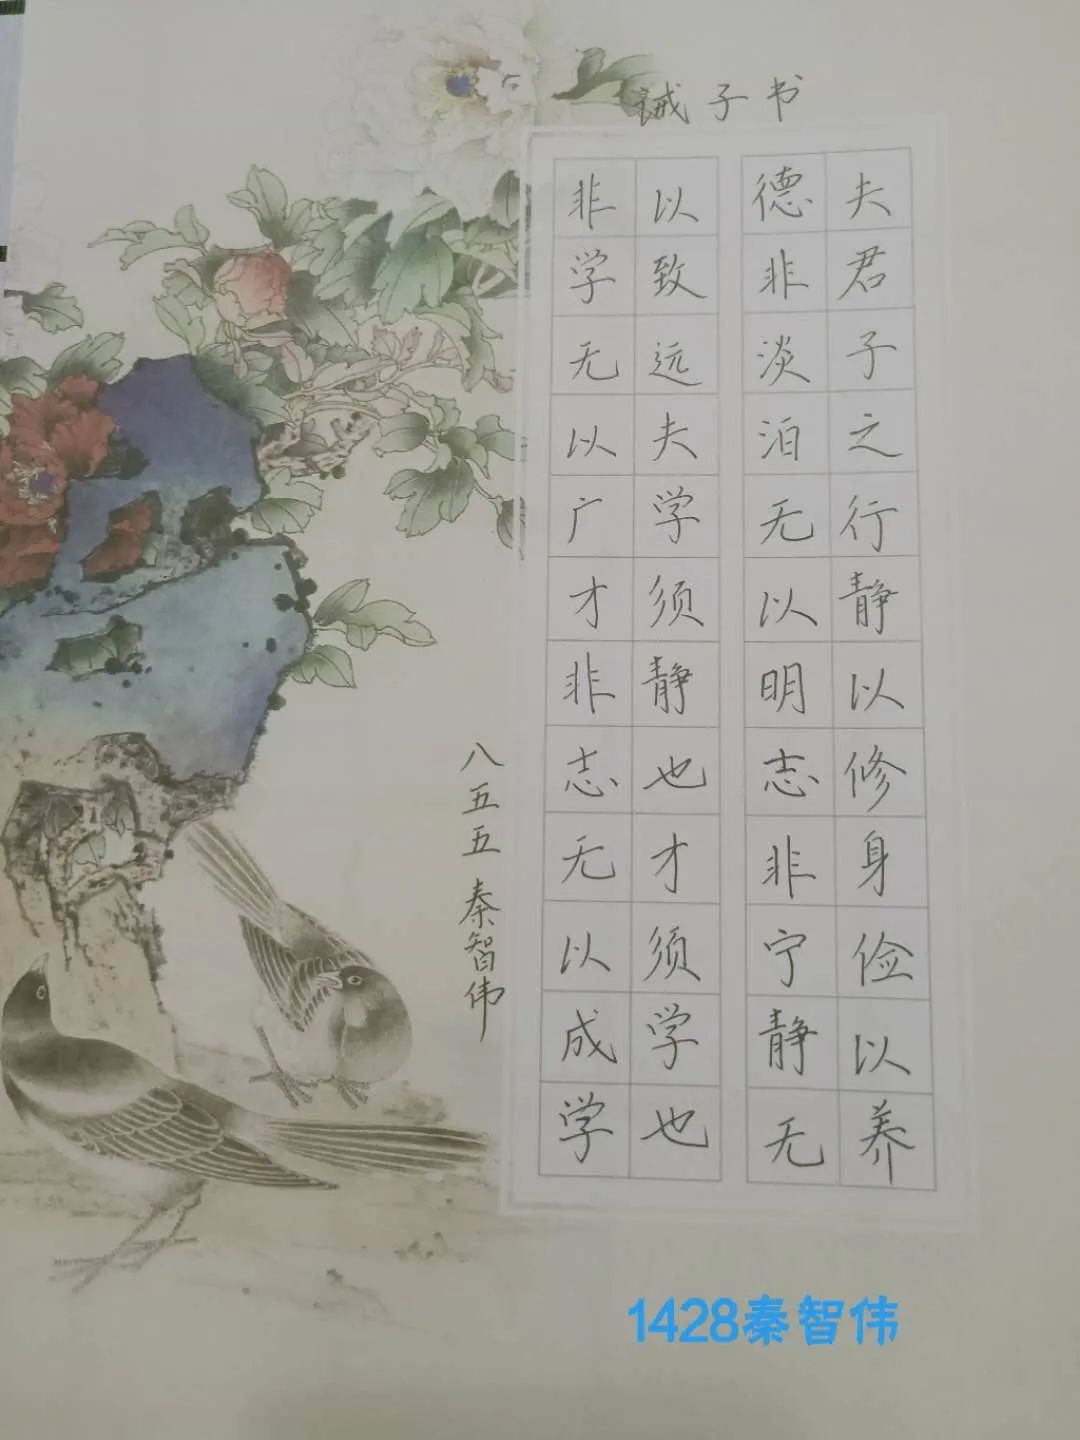 诫子书
夫君子之行静以修身俭以养
德非淡泊无以明志非宁静无
以致远夫学须静也才须学也
非学无以广才非志无以成学
八五五 秦智伟
1428秦智伟